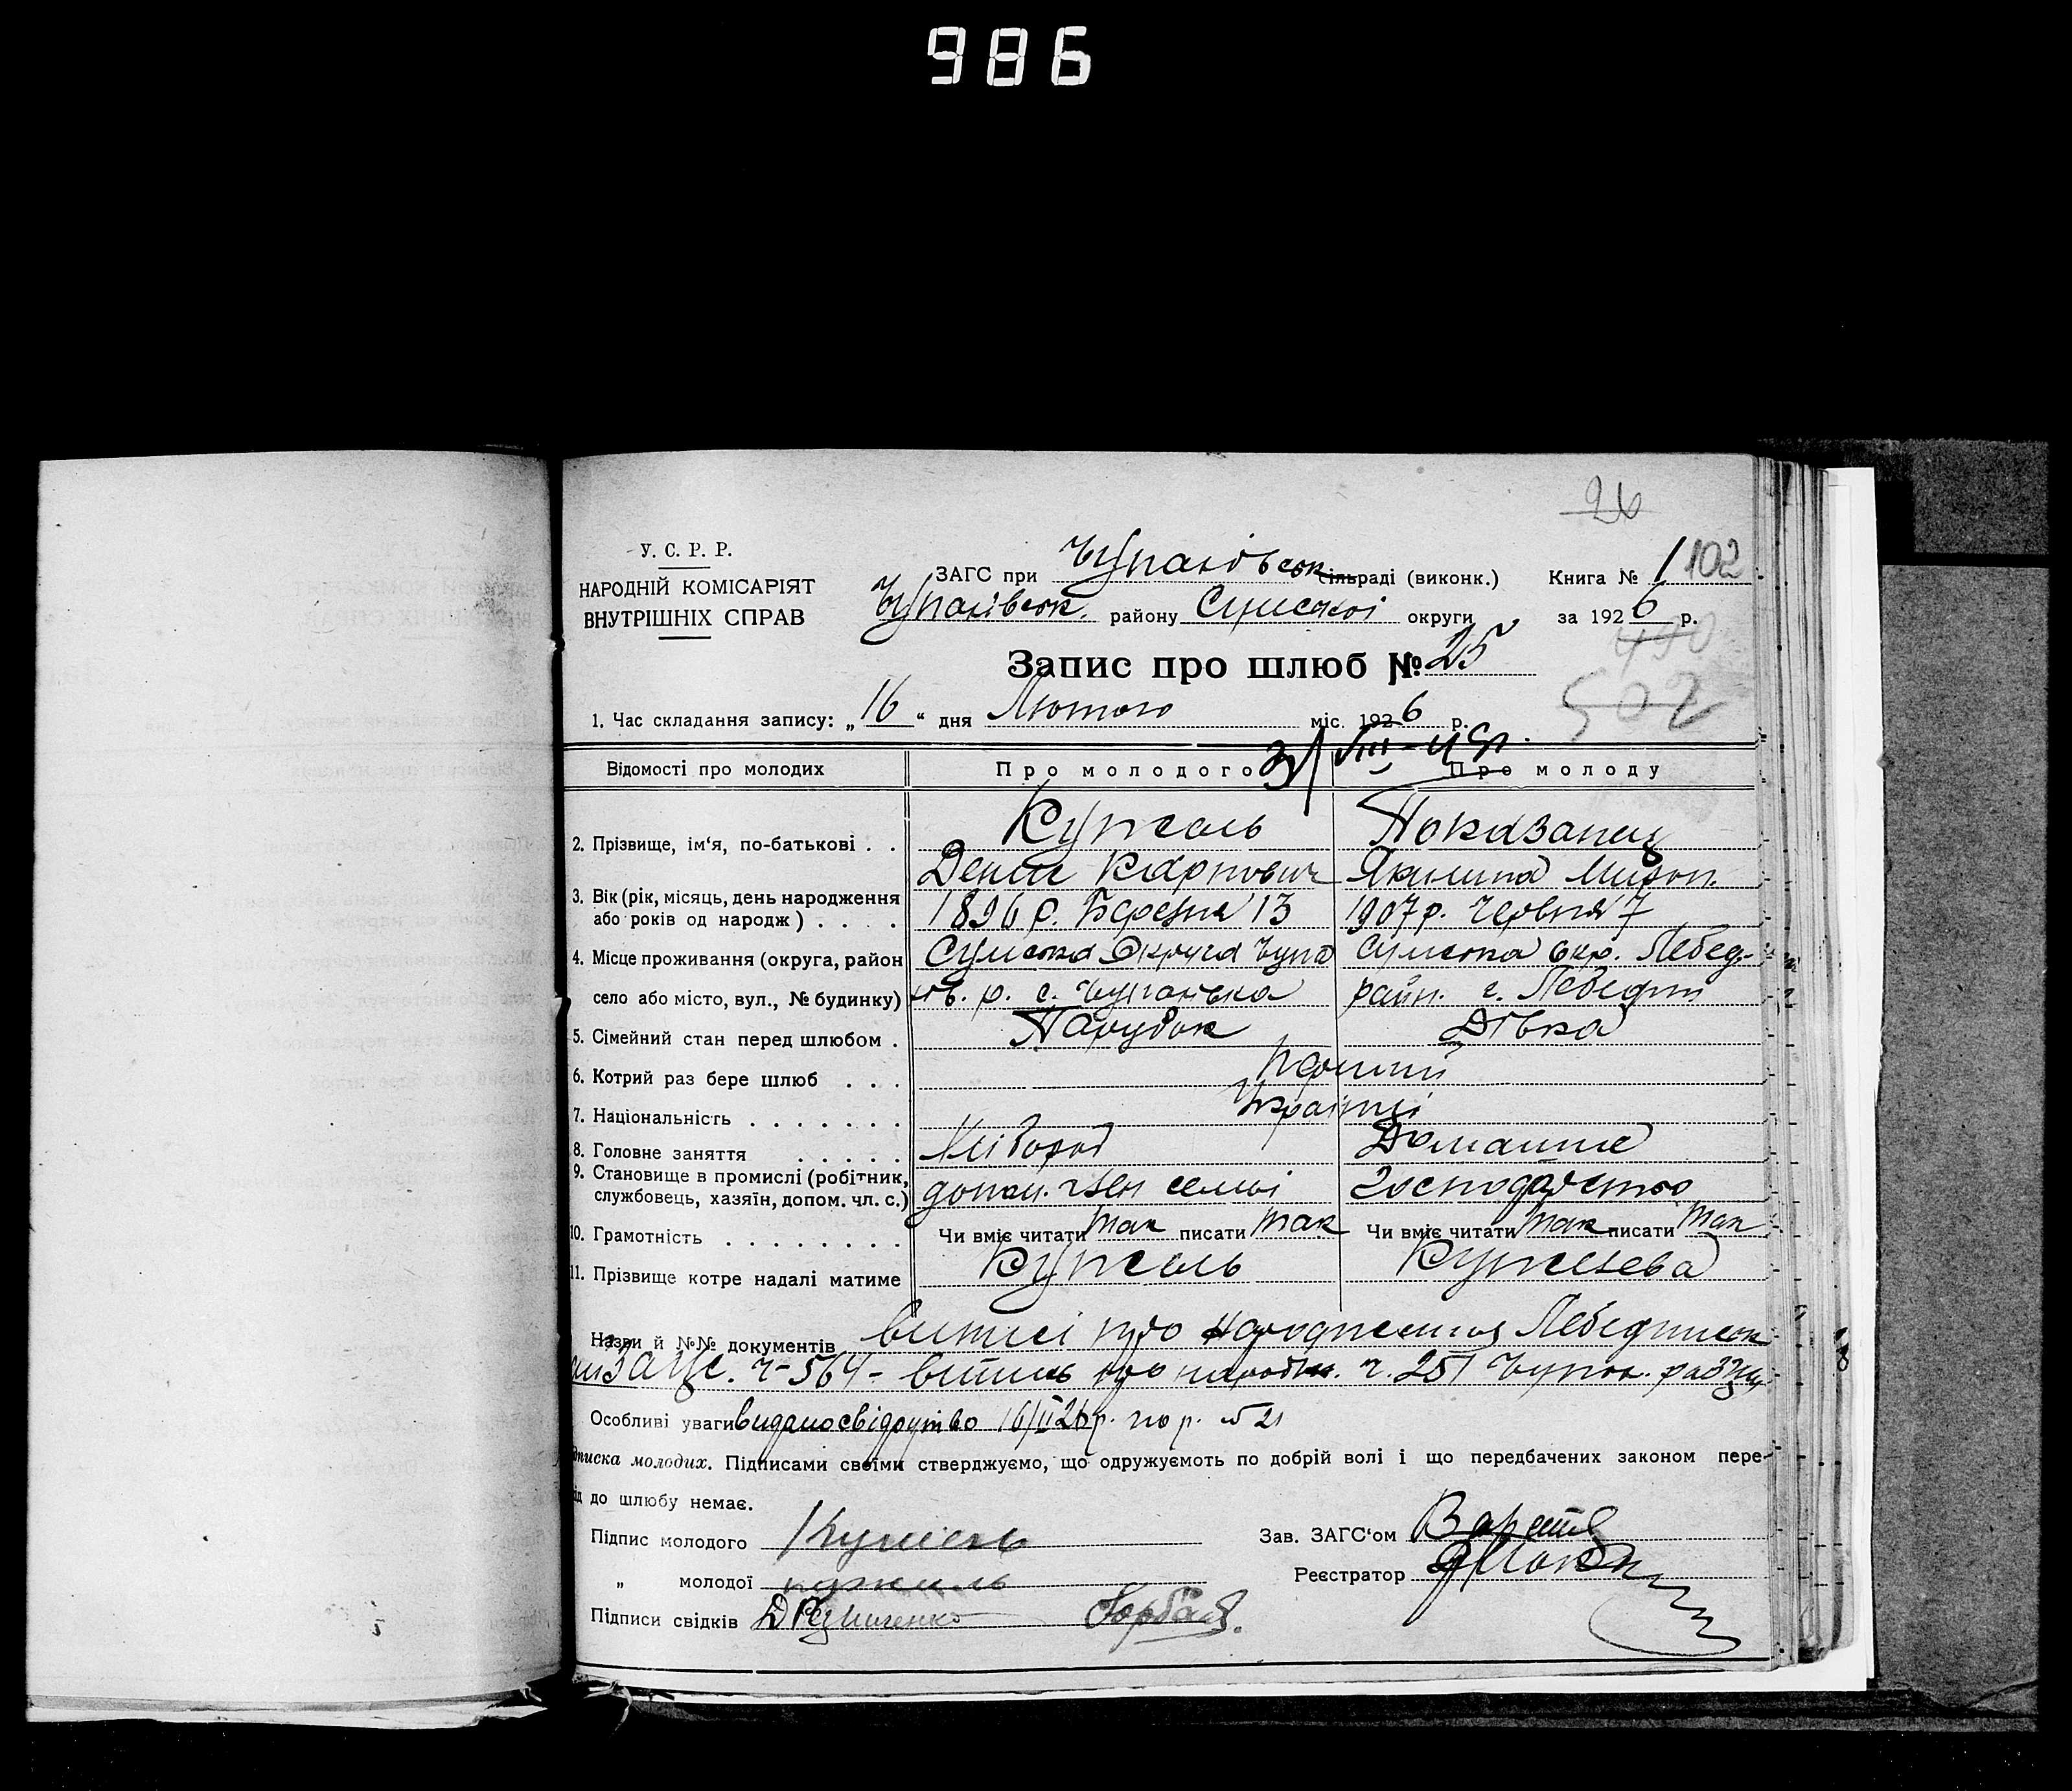 986
26
У. С. Р. Р.
НАРОДНІЙ КОМІСАРІЯТ
ВНУТРІШНІХ СПРАВ
ЗАГС при Чупахівськ сільраді (виконк.) Книга № 1 102
Чупахівськ. району Сумської округи за 1926 р.
Запис про шлюб № 25
502
1. Час складання запису: „16“ дня Лютого міс. 1926 р.
Відомості про молодих Про молодого Про молоду
2. Прізвище, ім‘я, по-батькові . . Кужель Показанец
Денис Карпович Якилина Мирон.
3. Вік (рік, місяць, день народження
або років од народж) . . . . 1896 р. Березня 13 1907 р. Червня 7
4. Місце проживання (округа, район Сумська Округа Чупа Сумська окр. Лебед.
село або місто, вул., № будинку) хів. р. с. Чупахівка район. г. Лебедин
5. Сімейний стан перед шлюбом . Парубок Дівка
6. Котрий раз бере шлюб . . . Перший
7. Національність . . . . . . . Українці
8. Головне заняття . . . . . Хлібороб Домашне
9. Становище в промислі (робітник,
службовець, хазяїн, допом. чл. с.) допом. член семьі господарство
10. Грамотність . . . . . . . . Чи вміє читати так писати так Чи вміє читати так писати так
11. Прізвище котре надалі матиме Кужель Кужелева
Назви й №№ документів витисі про народження Лебединськ
ЗАГС. ч-564- витись про народж. ч. 251 Чупах.
Особливі уваги видано свідоцтво 16/II 26 р. по р. № 21
дписка молодих. Підписами своїми стверджуємо, що одружуємоть по добрій волі і що передбачених законом пере-
ід до шлюбу немає.
Підпис молодого Кужель Зав. ЗАГС‘ом
„ молодої кужиль Реєстратор
Підписи свідків Д Резниченко Горбаб.